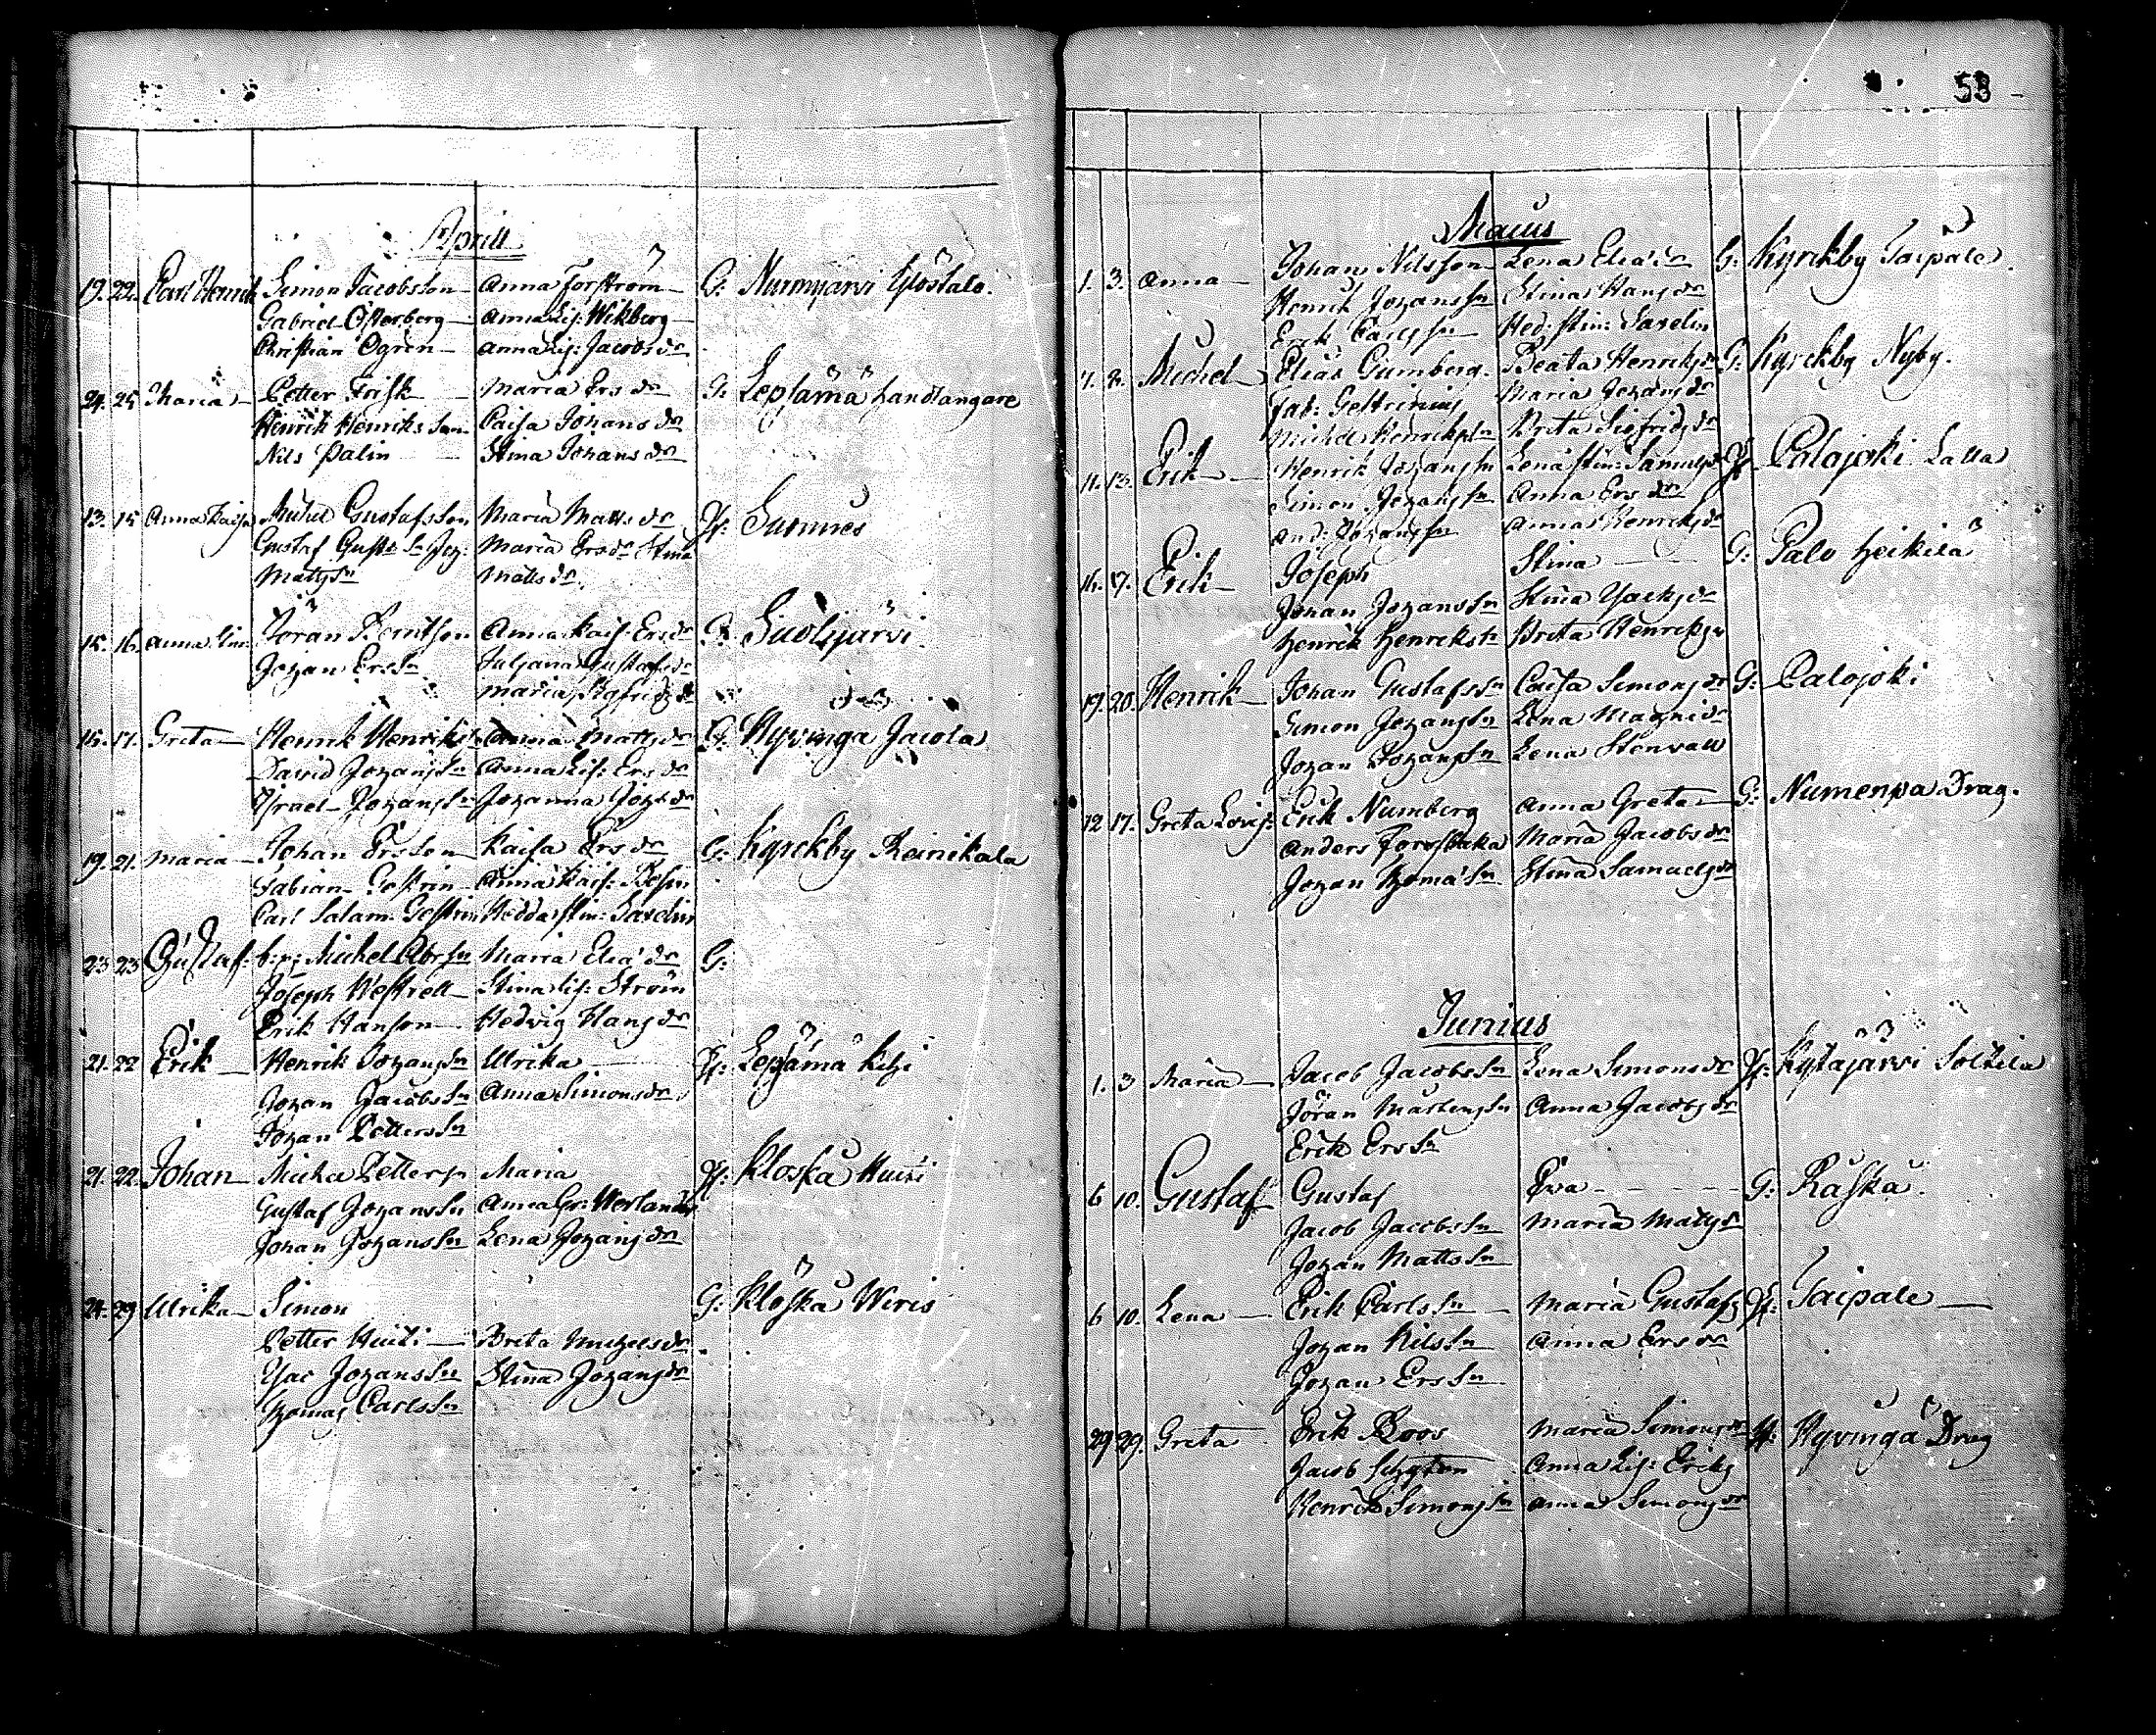 Aprill
19. 22. Carl Henrik Simon Jacobsson Anna Forström G: Nurmijärvi Ujöstalo.
Gabriel Österberg Anna Lis: Wikberg
Christian Ögrén Anna Lis: Jacobs dr
24. 25 Maria Petter Frisk Maria Ers dr G: Lepsämä handlangare
Henrik Henriks Son Caisa Johans dr
Nils Palin Stina Johans dr
13. 15 Anna Kaisa Michel Gustafsson Maria Matts dr Gustaf Gust: Sn Maria Ers dr Stina
Matts Sn Matts dr
15. 16. Anna Jöran Berntsson Anna Kais: Ers dr G: Suolijärvi
Johan Ers Sn Juljana Gustafs dr
Maria Sigfrids dr
15. 17. Greta Henrik Henriks Anna Matts dr G: Hyvinga Jacola
David Johans Sn Anna Lis: Ers dr
Israel Johans Sn Johanna Joh: dr
19. 21. Maria Johan Ersson Kaisa Ers dr G: Kyrckby Reinikala
Fabian Gestrin Anna Kais: Rosin
Carl Salam: Gestrin Hedda Stin: Savelin
23 23 Gustaf: Michel Abr Sn Maria Elia dr G:
Joseph Westrell Stina Lis: Ström
Erik Hanson Hedvig Hans dr
21. 22 Erik Henrik Johans Sn Ulrika Lepsämä Kihi
Johan Jacobs Sn Anna Simons dr
Johan Petters Sn
21. 22. Johan Micka Petters Maria Klöska Huiki
Gustaf Johans Sn Anna Gr: Werlander
Johan Johans Sn Lena Johans dr
24. 29 Ulrika Simon G: Klöska Weris
Petter Huiki Brita Michels dr
Isac Johans Sn Stina Johans dr
Thomas Carls Sn
53
Maius
1. 3. Anna Johan Nilsson Lena Elia dr G: Kyrckby Taipale.
Henrik Johans Sn Stina Hans dr
Erik Carls Sn Hed: Stin: Savelin
7. Michel Elias Gumberg. Beata Henriks dr G: Kyrckby Nyby.
Fab: Gestrinius Maria Johans dr
Michel Henriks Sn Brita Sigfrids dr
11. 13. Erik Henrik Johans Sn Lena Stin: Samuels dr Palojoki Lalla
Simon Johans Sn Anna Ers dr
And: Johans Sn Anna Henriks dr
16. 17. Erik Joseph Stina G: Palo Heikilä
Johan Johans Sn Stina Isacks dr
Henrik Henriks Sn Brita Henriks
19. 20. Henrik Johan Gustafs Sn Caisa Simons dr G: Palojoki
Simon Johans Sn Lena Magni dr
Johan Johans Sn Lena Stenvall
12 17. Greta Lovis: Erik Numberg Anna Greta G: Numenpä Drag.
Anders Maria Jacobs dr
Johan Thoma Sn Stina Samuels dr
Junius
1. 3 Maria Jacob Jacobs Sn Lena Simons dr Kytäjärvi Soltila
Jöran Mårtens Sn Anna Jacobs dr
Erik Ers Sn
6 10. Gustaf Gustaf Eva G: Raska.
Jacob Jacobs Sn Maria Matts
Johan Matts Sn
6 10. Lena Erik Carls Sn Maria Gustafs Taipale
Johan Nils Sn Anna Ers dr
Johan Ers Sn
29 29. Greta Erik Roos Maria Simons dr Hyvinga Drag
Jacob Anna Lis: Eriks
Henrik Simons Sn Anna Simons dr